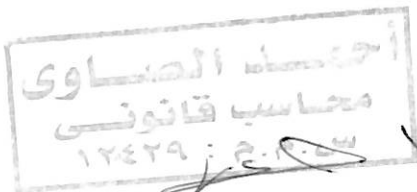 أحمد الصاوى
محاسب قانونى
س.م.م : ١٢٤٢٩